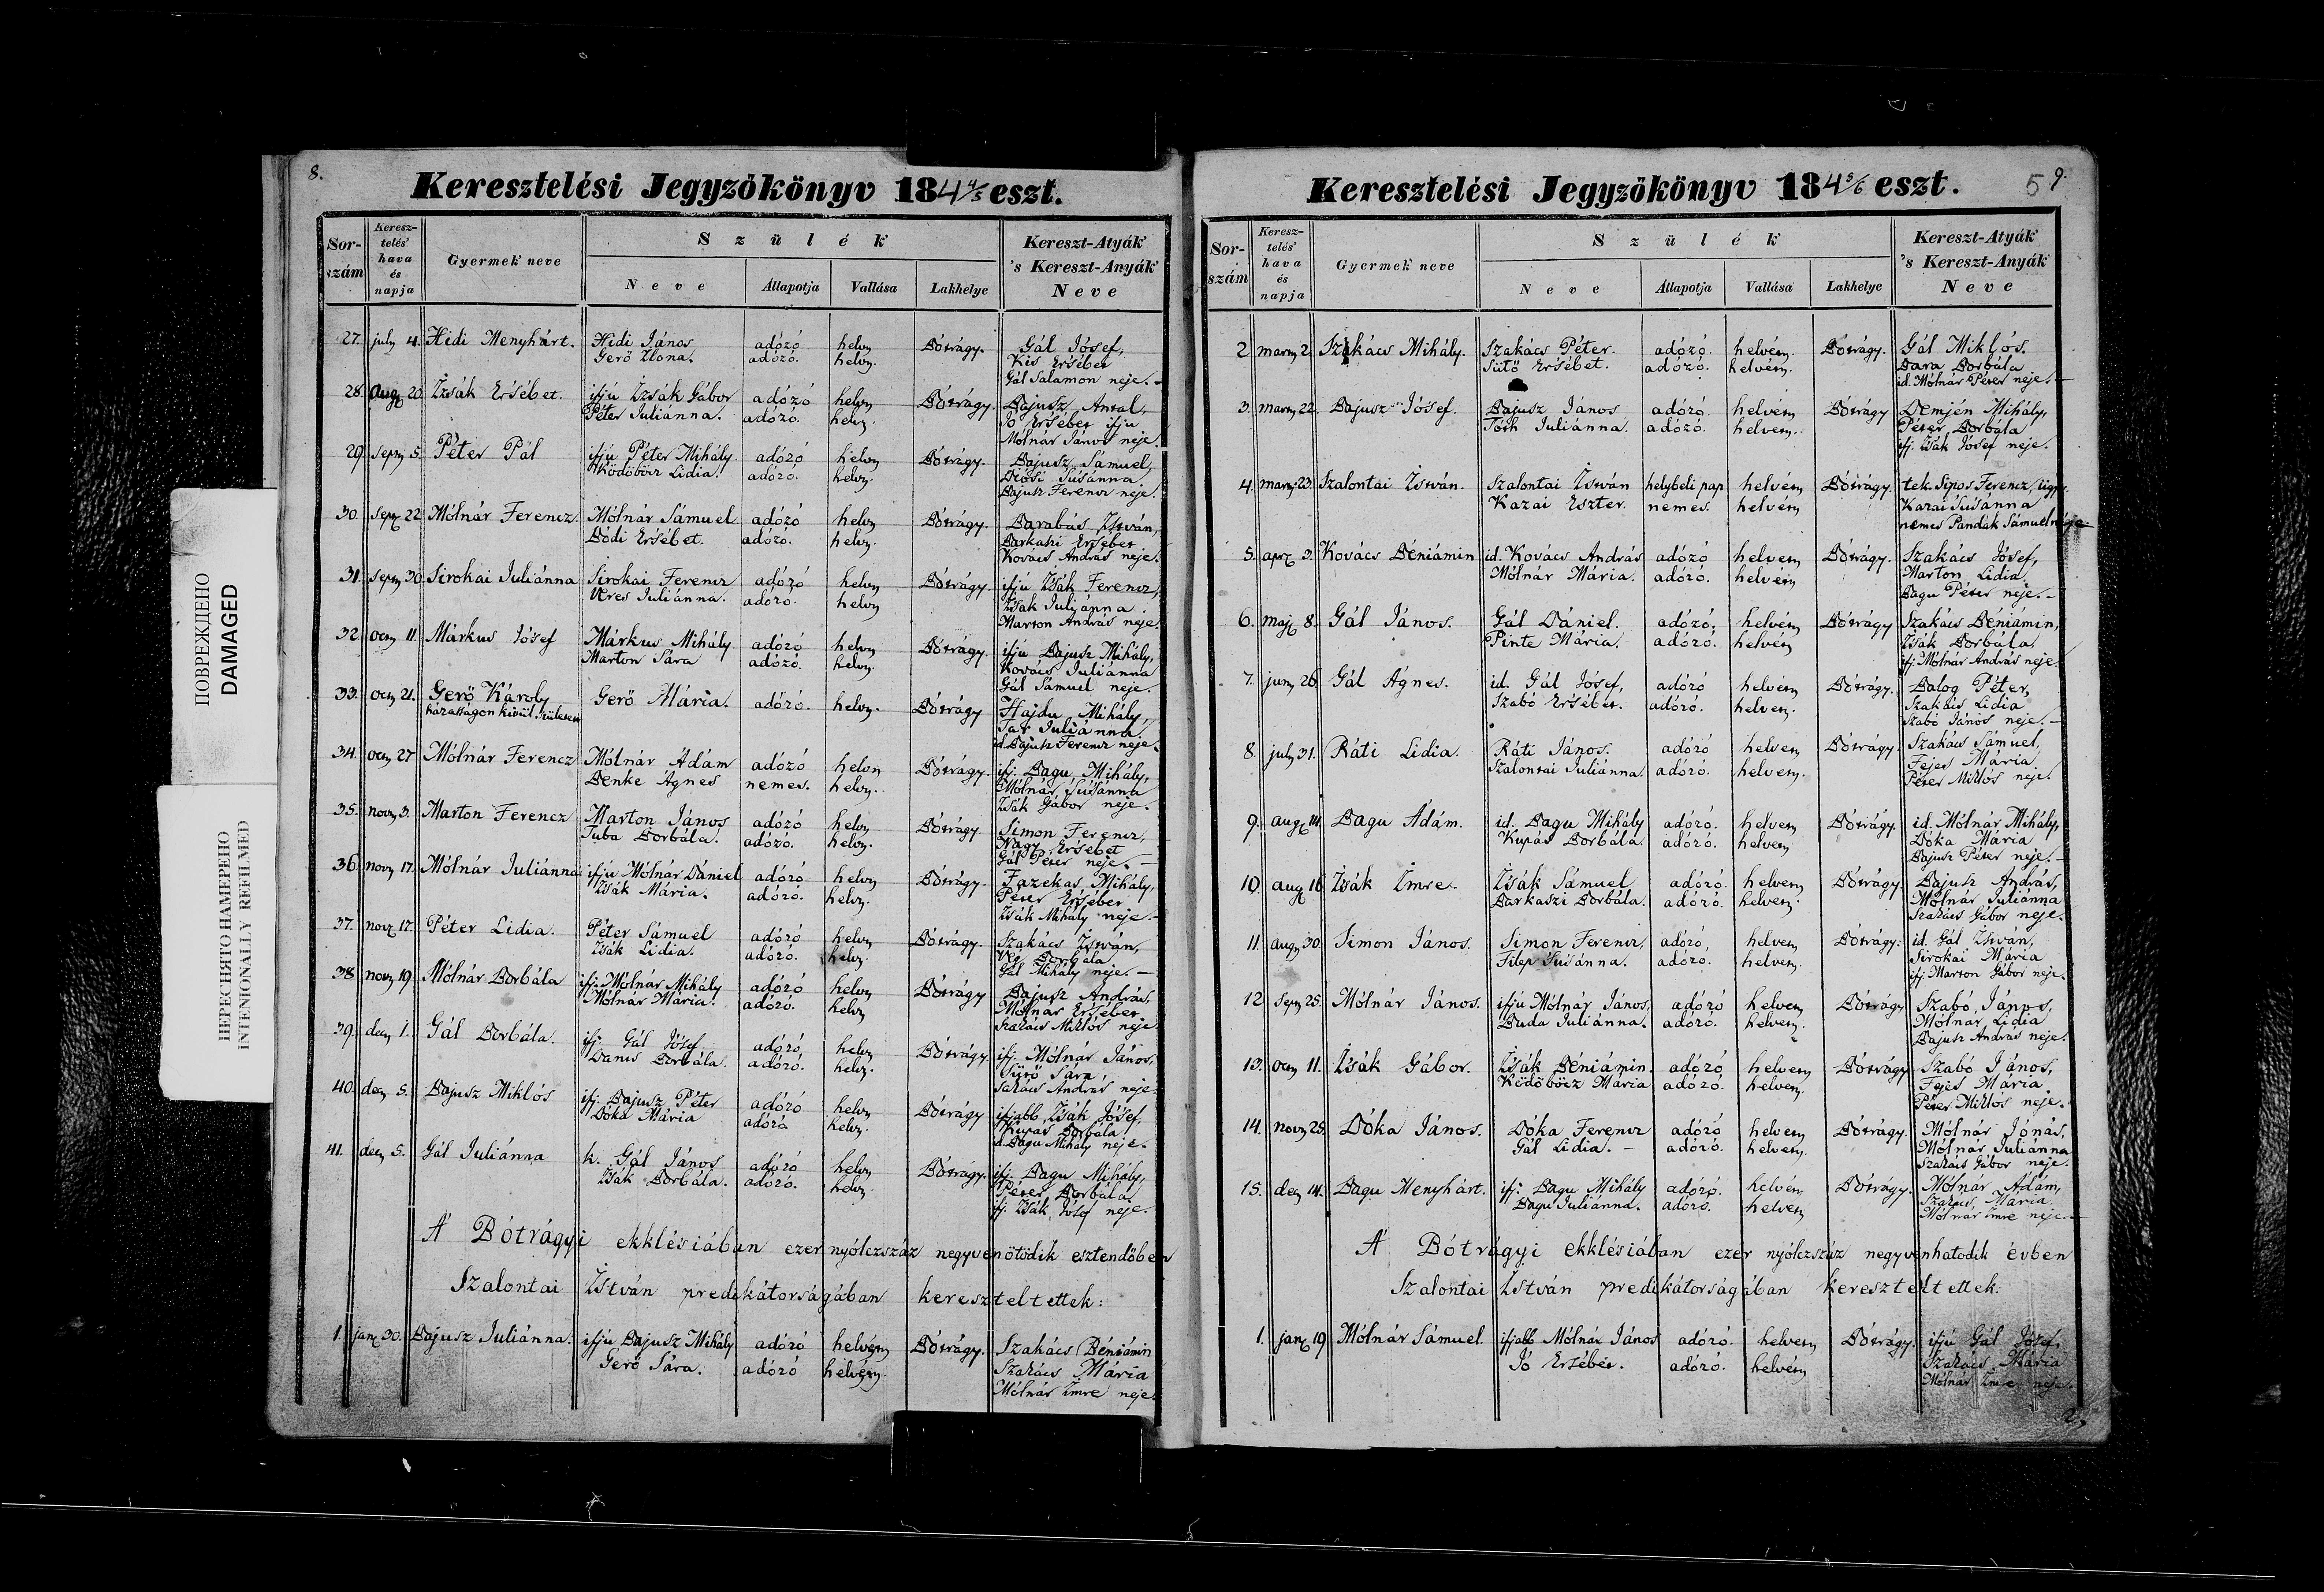 8.
Keresztelési Jegyzökönyv 184 4/5 eszt.
Sor-szám
Keresz-telés' hava és napja
Gyermek neve
Szülék
Neve
Állapotja
Vallása
Lakhelye
Kereszt-Atyák 's Kereszt-Anyák Neve
27. july 4. Hidi Menyhárt. Hidi János adózó helv Bótrágy. Gál Jósef,
Gerö Ilona. adózó. helv. Kis Ersébet
Gál Salamon neje.
28. Aug 20. Izsák Ersébet. ifjú Izsák Gábor adózó helv Bótrágy. Bajusz Antal,
Péter Juliánna. adózó. helv. Jó Ersébet ifju
Mólnár János neje.
29. sept 5. Péter Pál ifjú Péter Mihály adózó helv Bótrágy. Bajusz Sámuel,
Ködöböcz Lidia. adózó. helv. Susánna
Bajusz Ferencz neje.
30. sept 22. Mólnár Ferencz Mólnár Sámuel adózó helv Bótrágy. Barabás István,
Bódi Ersébet. adózó. helv. Barkaszi Ersébet
Kovács András neje.
31. sept 30. Sirokai Juliánna Sirokai Ferencz adózó helv Bótrágy. ifjú Izsák Ferencz,
Veres Juliánna. adózó. helv Izsák Juliánna
Marton András neje.
32. oct 11. Márkus Jósef Márkus Mihály adózó helv Bótrágy. ifjú Bajusz Mihály,
Marton Sára adózó. helv. Kovács Juliánna
Gál Sámuel neje.
33. oct 21. Gerö Károly Gerö Mária. adózó. helv. Bótrágy Hajdu Mihály,
házasságon kivül Született Juliánna
id. Bajusz Ferencz neje.
34. oct 27 Mólnár Ferencz Mólnár Ádám adózó helv Bótrágy. ifj. Bagu Mihály,
Benke Ágnes nemes. helv. Mólnár Susánna
Izsák Gábor neje.
35. nov 3. Marton Ferencz Marton János adózó helv Bótrágy. Simon Ferencz,
Tuba Borbála. adózó. helv. Nagy Ersébet
Gál Péter neje.
36. nov 17. Mólnár Juliánna ifjú Mólnár Dániel adózó helv Bótrágy. Fazekas Mihály,
Izsák Mária. adózó. helv. Péter Ersébet
Izsák Mihály neje.
37. nov 17. Péter Lidia. Péter Sámuel adózó helv Bótrágy. Szakács István,
Izsák Lidia. adózó. helv. Vég Borbála
Gál Mihály neje.
38 nov 19. Mólnár Borbála ifj. Mólnár Mihály adózó helv Bótrágy Bajusz András,
Mólnár Mária. adózó. helv Mólnár Ersébet
Szakács Miklós neje
39. dec 1. Gál Borbála. ifj. Gál Jósef adózó helv Bótrágy. ifj. Mólnár János,
Danis Borbála. adózó. helv. Sára
Szakács András neje
40. dec 5. Bajusz Miklós ifj. Bajusz Péter adózó helv Bótrágy ifjabb Izsák Jósef,
Dóka Mária adózó helv. Kupás Borbála
id. Bagu Mihály neje.
41. dec 5. Gál Juliánna k. Gál János adózó helv Bótrágy. ifj. Bagu Mihály,
Izsák Borbála. adózó. helv. Péter Borbála
ifj. Izsák Jósef neje.
A' Bótrágyi ekklésiában ezer nyólczszáz negyvenötödik esztendöben
Szalontai István predikátorságában kereszteltettek:
1. jan 30. Bajusz Juliánna. ifjú Bajusz Mihály adózó helvém Bótrágy. Szakács Béniámin
Gerö Sára. adózó helvém. Szakács Mária
Mólnár Imre neje.
5 9.
Keresztelési Jegyzökönyv 184 5/6 eszt.
Sor-szám
Keresz-telés' hava és napja
Gyermek neve
Szülék
Neve
Állapotja
Vallása
Lakhelye
Kereszt-Atyák 's Kereszt-Anyák Neve
2 mart 2. Szakács Mihály. Szakács Péter. adózó. helvém. Bótrágy. Gál Miklós.
Sütö Ersébet. adózó. helvém. Dara Borbála
id. Mólnár Péter neje.
3. mart 22. Bajusz Jósef. Bajusz János adózó. helvém Bótrágy Demjén Mihály,
Tóth Juliánna. adózó. helvém. Péter Borbála
ifj. Izsák Jósef neje.
4. mart 23. Szalontai István. Szalontai István helybeli pap helvém Bótrágy. tek. Sipos Ferencz,
Kazai Eszter. nemes. helvém Kazai Susánna
nemes Pandák Sámuel neje.
5. apr 3. Kovács Béniámin id. Kovács András adózó helvém Bótrágy. Szakács Jósef,
Mólnár Mária. adózó. helvém Marton Lidia
Bagu Péter neje.
6. maj 8. Gál János. Gál Dániel. adózó. helvém Bótrágy Szakács Béniámin,
Pinte Mária. adózó. helvém Izsák Borbála
ifj. Mólnár András neje.
7. jun 26. Gál Ágnes. id. Gál Jósef, adózó helvém Bótrágy. Balog Péter,
Szabó Ersébet. adózó. helvém. Szakács Lidia
Szabó János neje.
8. july 31. Ráti Lidia. Ráti János. adózó helvém Bótrágy Szakács Sámuel,
Szalontai Juliánna. adózó. helvém. Fejes Mária
Péter Miklós neje.
9. aug 14. Bagu Ádám. id. Bagu Mihály adózó. helvém Bótrágy. id. Mólnár Mihály,
Kupás Borbála. adózó. helvém Dóka Mária
Bajusz Péter neje.
10. aug 16. Izsák Imre. Izsák Sámuel adózó. helvém Bótrágy. Bajusz András,
Barkaszi Borbála. adózó. helvém. Mólnár Juliánna
Szakács Gábor neje.
11. aug 30. Simon János. Simon Ferencz, adózó, helvém Bótrágy. id. Gál István,
Filep Susánna. adózó. helvém. Sirokai Mária
ifj. Marton Gábor neje.
12 sept 25. Mólnár János. ifjú Mólnár János, adózó helvém Bótrágy Szabó János,
Buda Juliánna. adózó. helvém. Mólnár Lidia
Bajusz András neje.
13. oct 11. Izsák Gábor. Izsák Béniámin. adózó helvém Bótrágy Szabó János,
Ködöböcz Mária adózó. helvém. Fejes Mária
Péter Miklós neje.
14. nov 25. Dóka János. Dóka Ferencz adózó helvém Bótrágy. Mólnár Jónás,
Gál Lidia. adózó. helvém. Mólnár Juliánna
Szakács Gábor neje.
15. dec 14. Bagu Menyhárt. ifj. Bagu Mihály adózó. helvém Bótrágy. Mólnár Ádám,
Bagu Juliánna. adózó. helvém Szakács Mária
Mólnár Imre neje.
A' Bótrágyi ekklésiában ezer nyólczszáz negyvenhatodik évben
Szalontai István predikátorságában kereszteltettek:
1. jan 19. Mólnár Sámuel. ifjabb Mólnár János adózó. helvém Bótrágy. ifjú Gál Jósef,
Jó Ersébet. adózó. helvém Szakács Mária
Mólnár Imre neje.
ПОВРЕЖДЕНО
DAMAGED
ПЕРЕСНЯТО НАМЕРЕНО
INTENIONALLY REFILMED